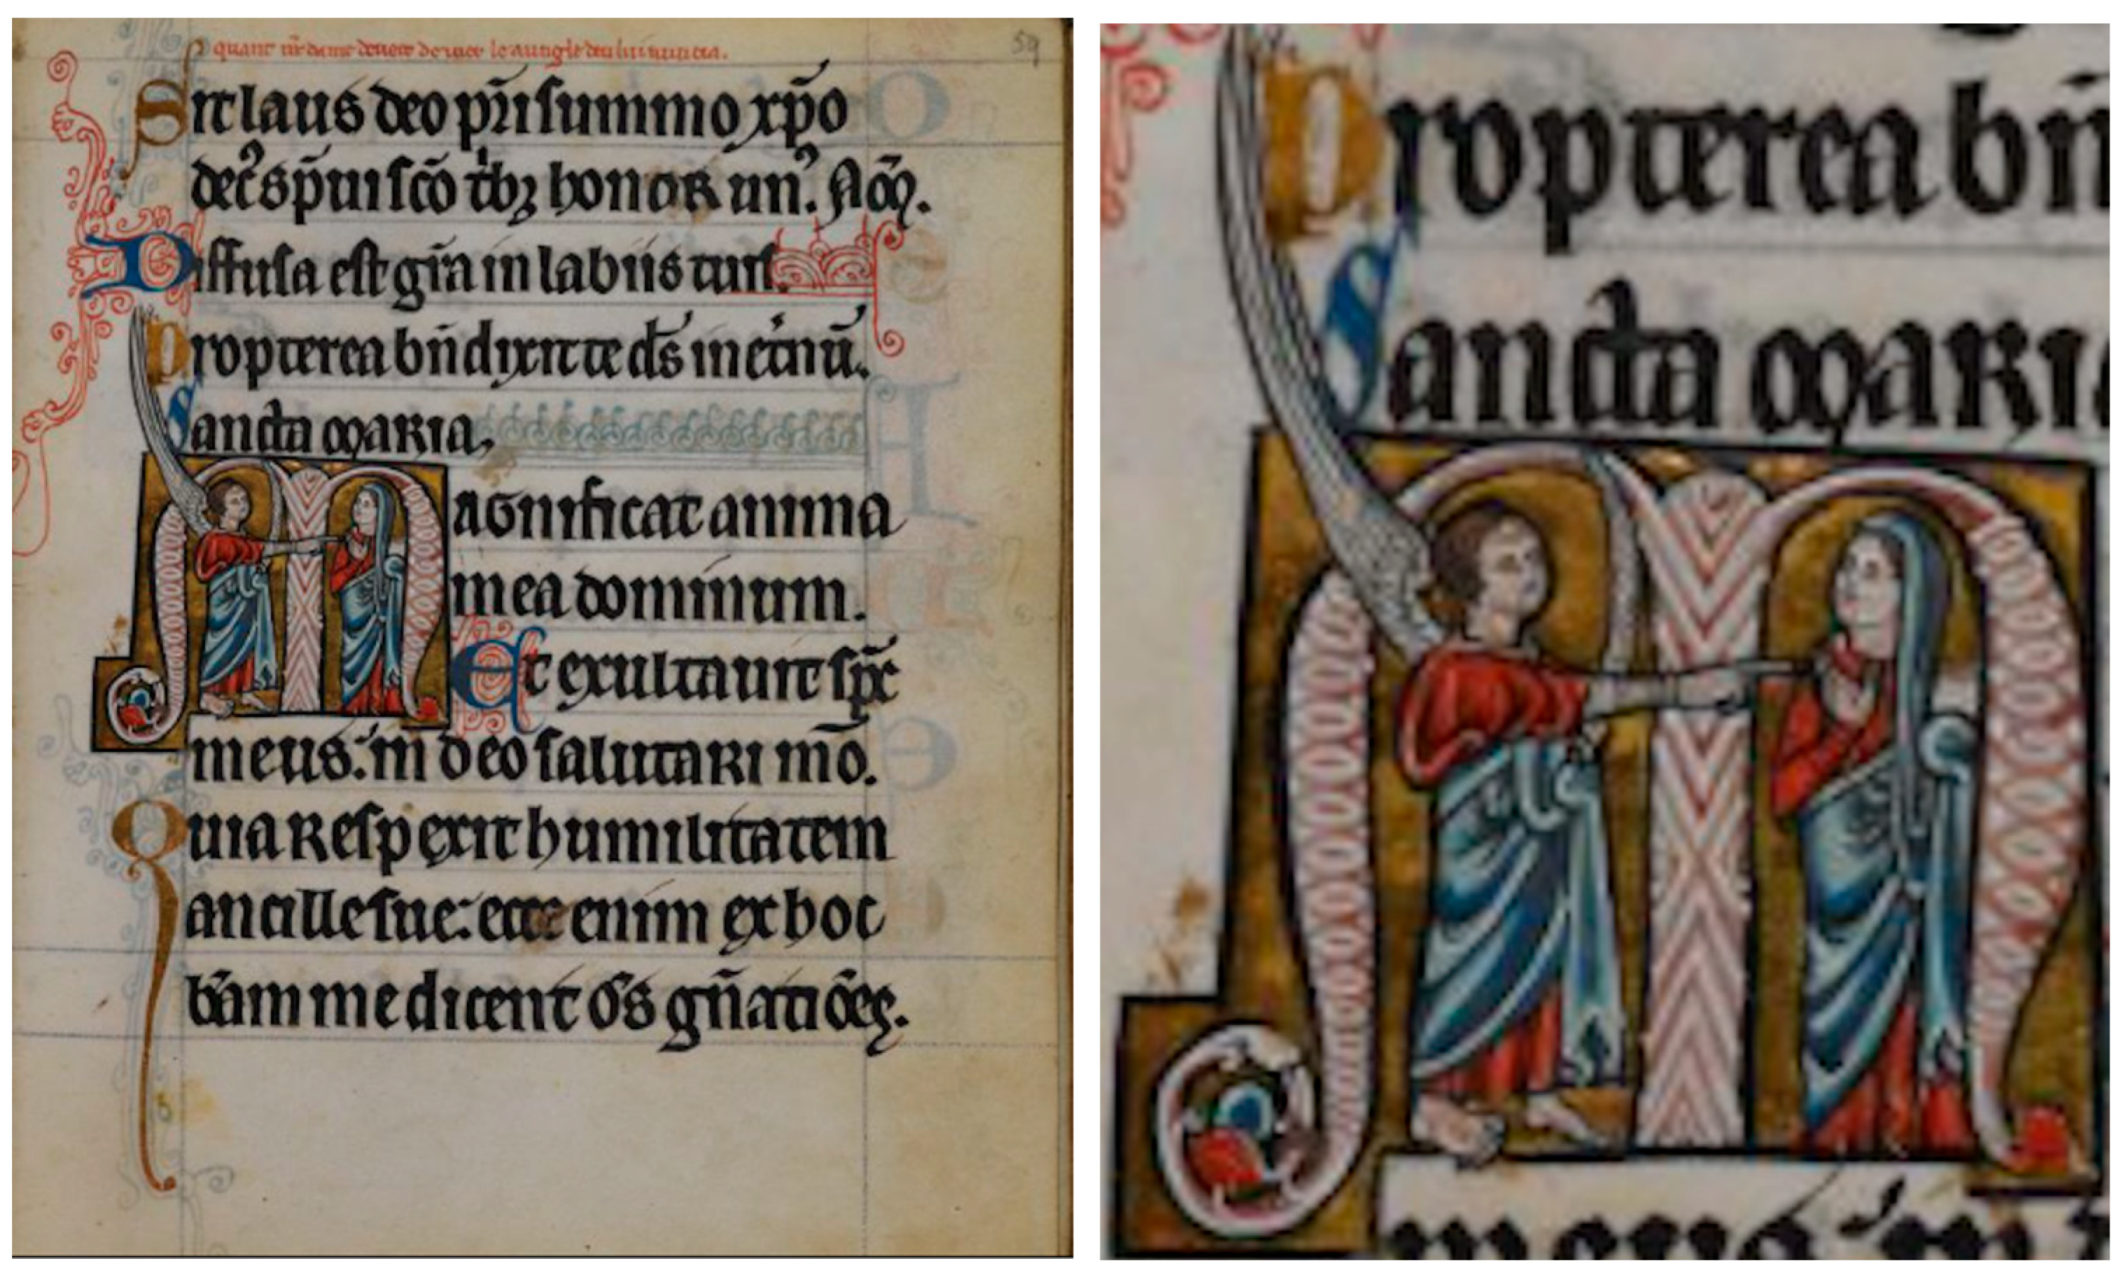 quant
59
Sit laus deo pr̄i summo xp̄o
dec᷒ sp̄ui sc̄o tͥbꝫ honor un᷒. Am̄.
Diffusa est gr̄a in labiis tuis.
Propterea bn̄dixit te ds̄ in et̄nū.
Sancta maria,
Magnificat anima
mea dominum.
Et exultauit sp̄c
meus: in deo salutari mō.
Quia respexit humilitatem
ancille sue: ecce enim ex hoc
bām me dicent ōs gn̄atiōes.
Propterea bn̄
Sancta mari
meus: in